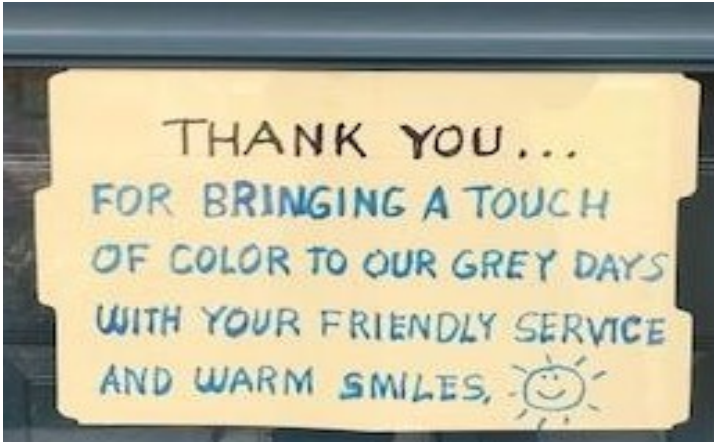 THANK YOU...
FOR BRINGING A TOUCH
OF COLOR TO OUR GREY DAYS
WITH YOUR FRIENDLY SERVICE
AND WARM SMILES.